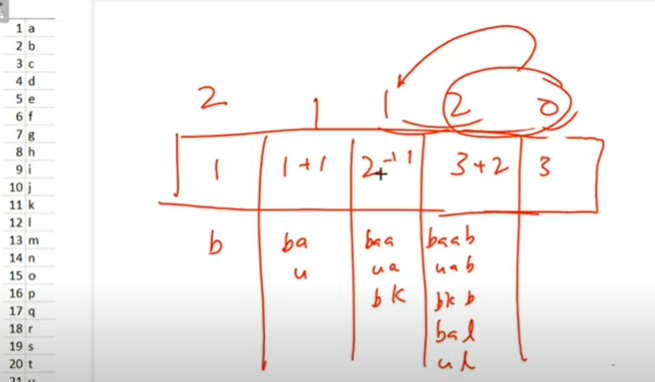 1 a
2 b
3 c
4 d
5 e
6 f
7 g
8 h
9 i
10 j
11 k
12 l
13 m
14 n
15 o
16 p
17 q
18 r
19 s
20 t
2 1 1 2 0
1 1+1 2+1 3+2 3
b ba baa baab
u ua uab
bk bkb
bal
ul